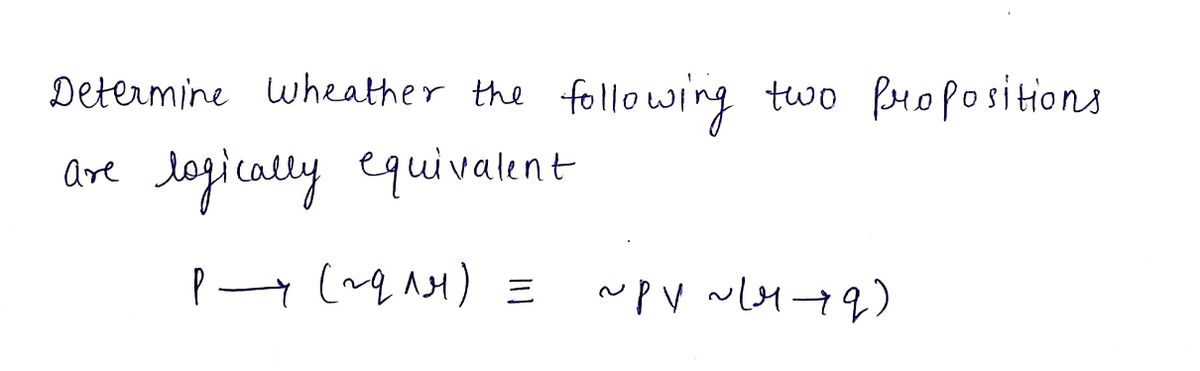 Determine wheather the following two propositions
are logically equivalent
p → (~q ∧ r) ≡ ~p ∨ ~(r → q)